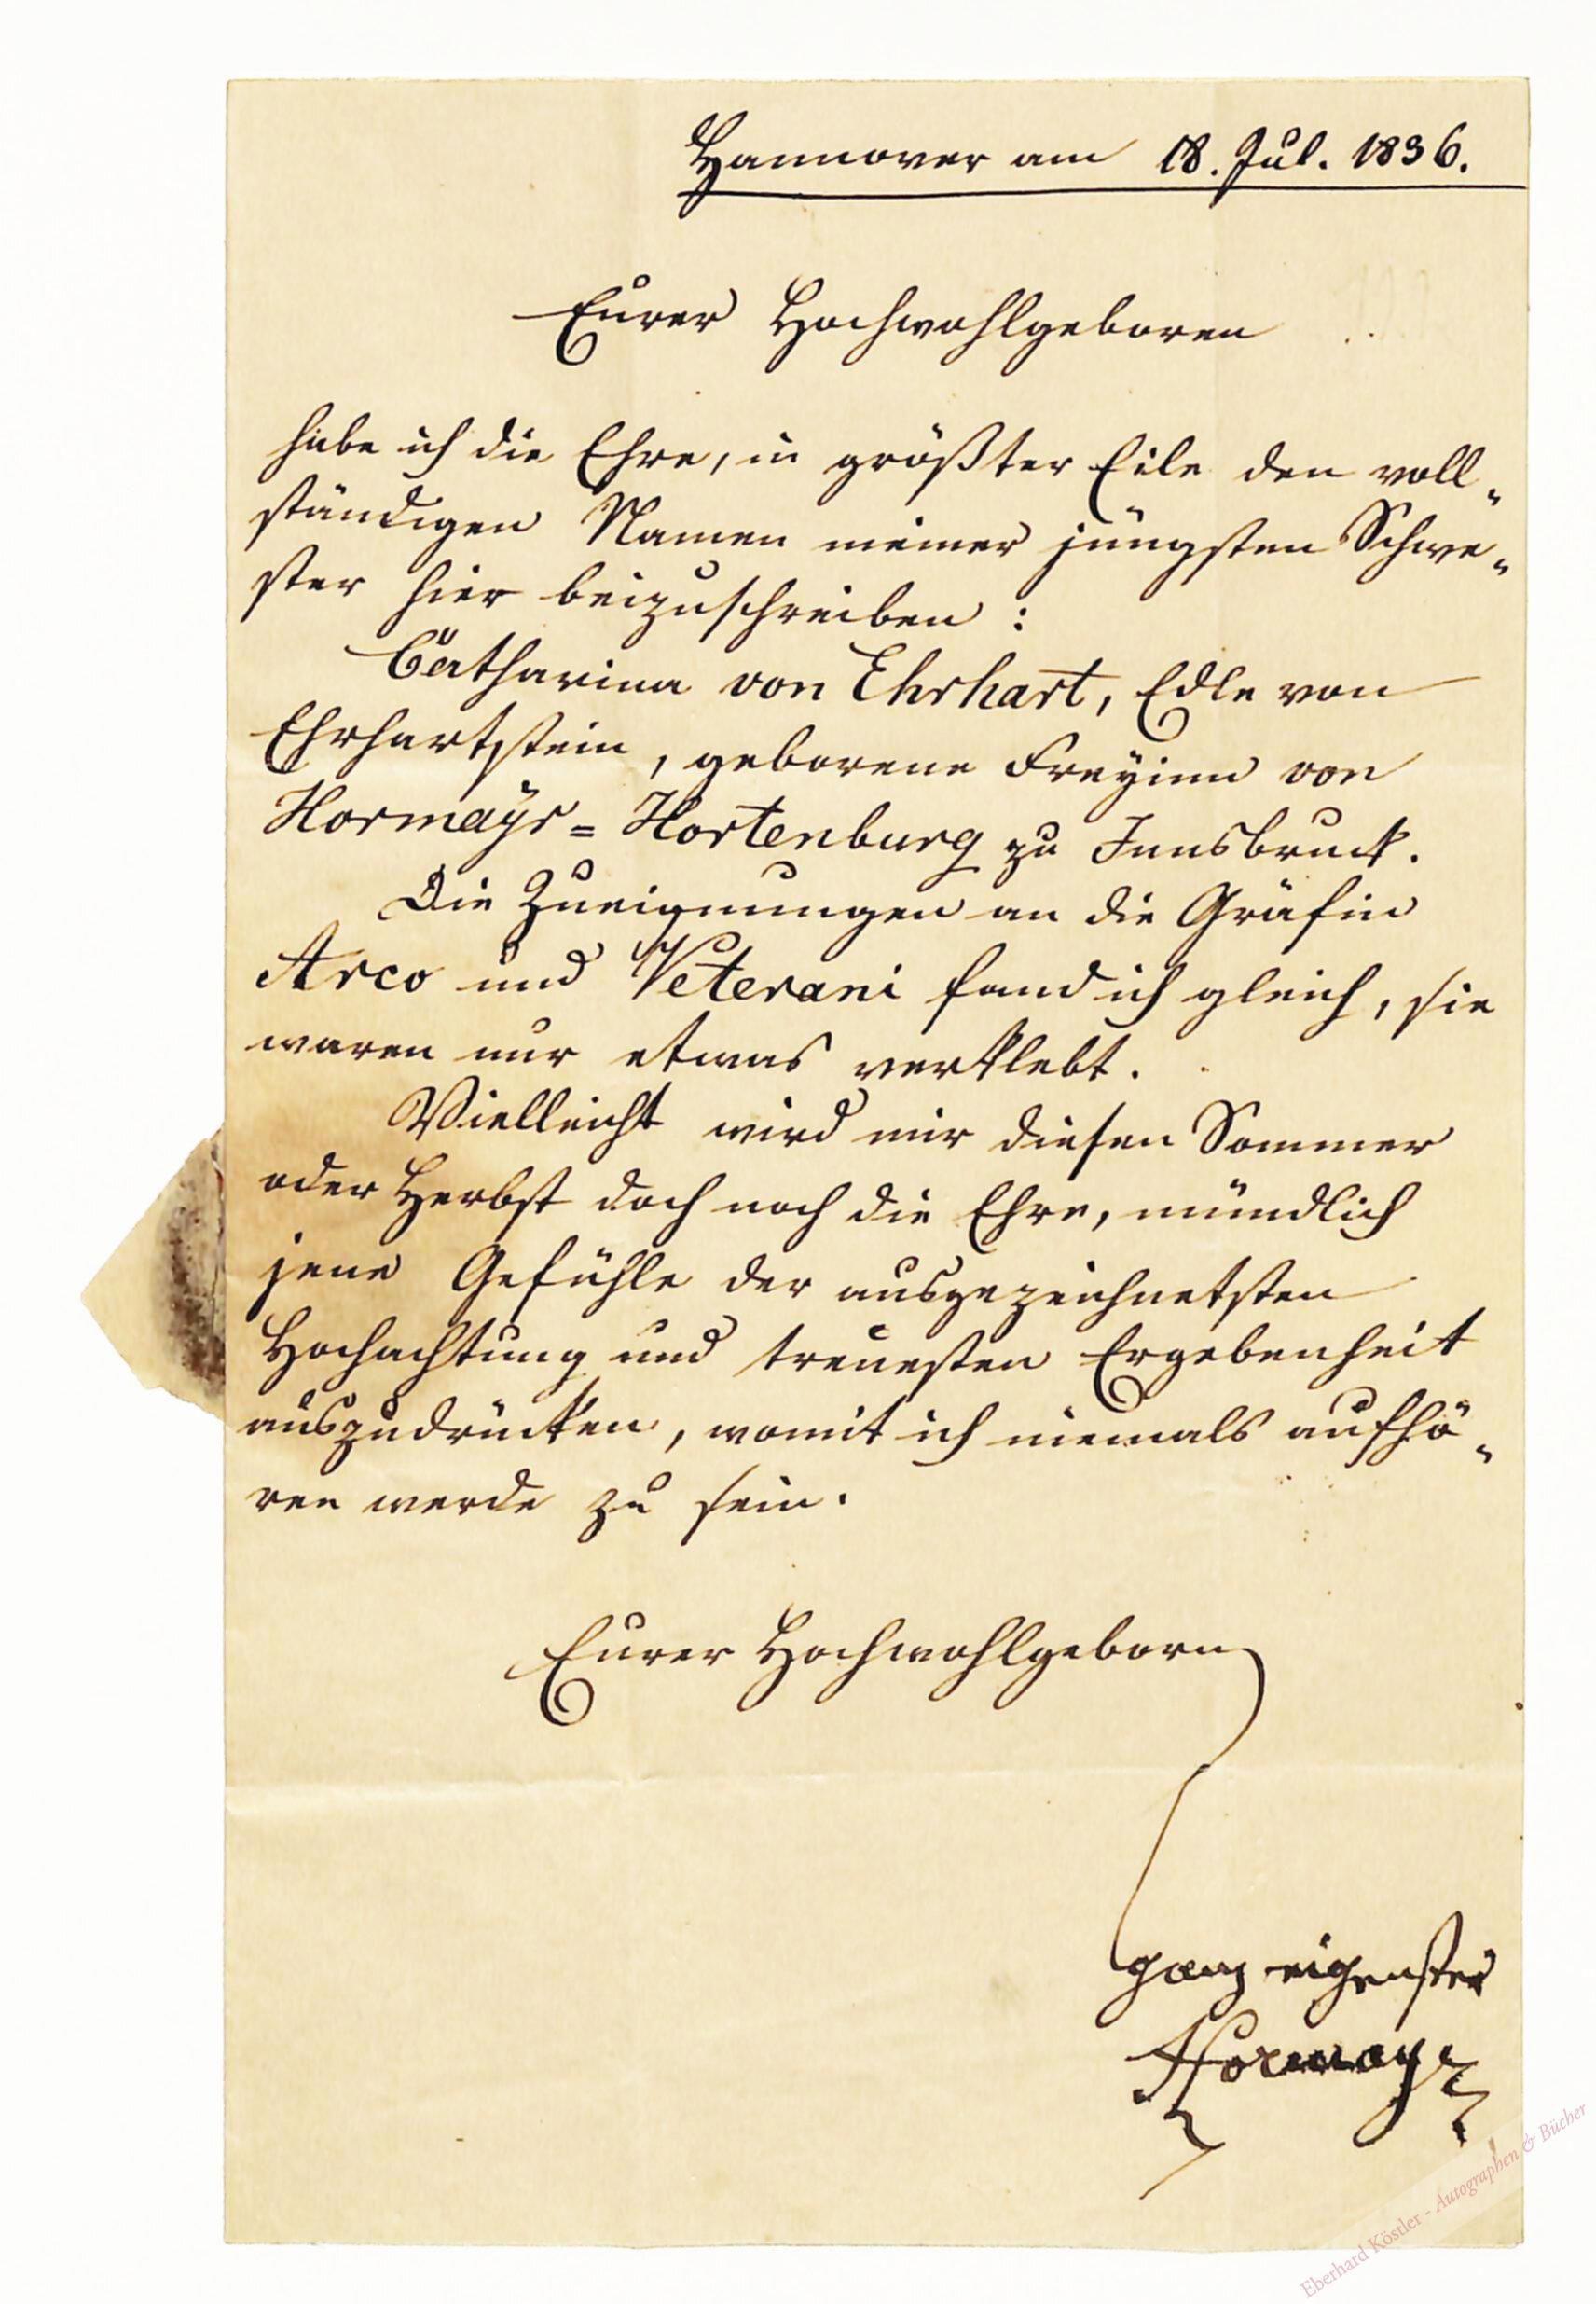 Hannover am 18. Jul. 1836.
Eurer Hochwohlgeboren
habe ich die Ehre, in größter Eile den voll-
ständigen Namen meiner jüngsten Schwe-
ster hier beizuschreiben:
Catharina von Ehrhart, Edle von
Ehrhartstein, geborene Freyinn von
Hormayr=Hortenburg zu Innsbruck.
Die Zueignungen an die Gräfin
Arco und Veterani fand ich gleich, sie
waren nur etwas verklebt.
Vielleicht wird mir diesen Sommer
oder Herbst doch noch die Ehre, mündlich
jene Gefühle der ausgezeichnetsten
Hochachtung und treuesten Ergebenheit
auszudrücken, womit ich niemals aufhö-
ren werde zu sein.
Eurer Hochwohlgeborn
ganz eigenster
Hormayr
Eberhard Köstler - Autographen & Bücher